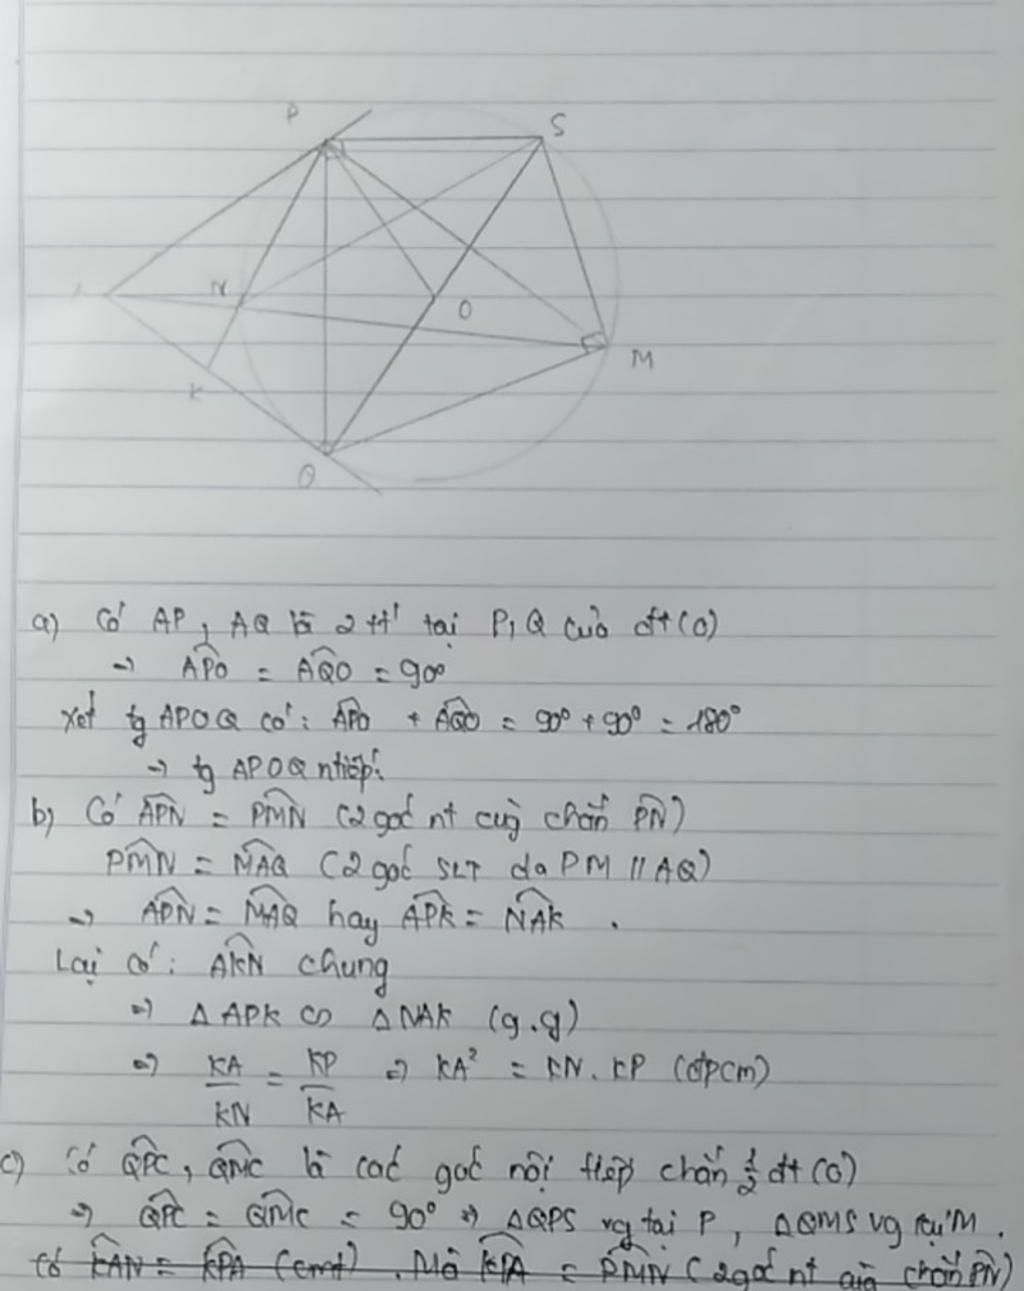 P
S
A
N
O
M
K
Q
a) Có AP, AQ là 2 tt' tại P, Q của đt(O)
→ \widehat{APO} = \widehat{AQO} = 90°
Xét tg APOQ có: \widehat{APO} + \widehat{AQO} = 90° + 90° = 180°
→ tg APOQ ntiếp.
b) Có \widehat{APN} = \widehat{PMN} (2 góc nt cùg chắn \widehat{PN})
\widehat{PMN} = \widehat{MAQ} (2 góc SLT do PM // AQ)
→ \widehat{APN} = \widehat{MAQ} hay \widehat{APK} = \widehat{NAK} .
Lại có: \widehat{AKN} chung
=> Δ APK ∽ Δ NAK (g.g)
=> \frac{KA}{KN} = \frac{KP}{KA} => KA² = KN. KP (đpcm)
c) Có \widehat{QPC}, \widehat{QMC} là các góc nội tiếp chắn \frac{1}{2} đt (O)
=> \widehat{QPC} = \widehat{QMC} = 90° => ΔQPS vg tại P, ΔQMS vg tại M.
Có \widehat{KAN} = \widehat{KPA} (cmt). Mà \widehat{KPA} = \widehat{PMN} (2 góc nt cùg chắn \widehat{PN})